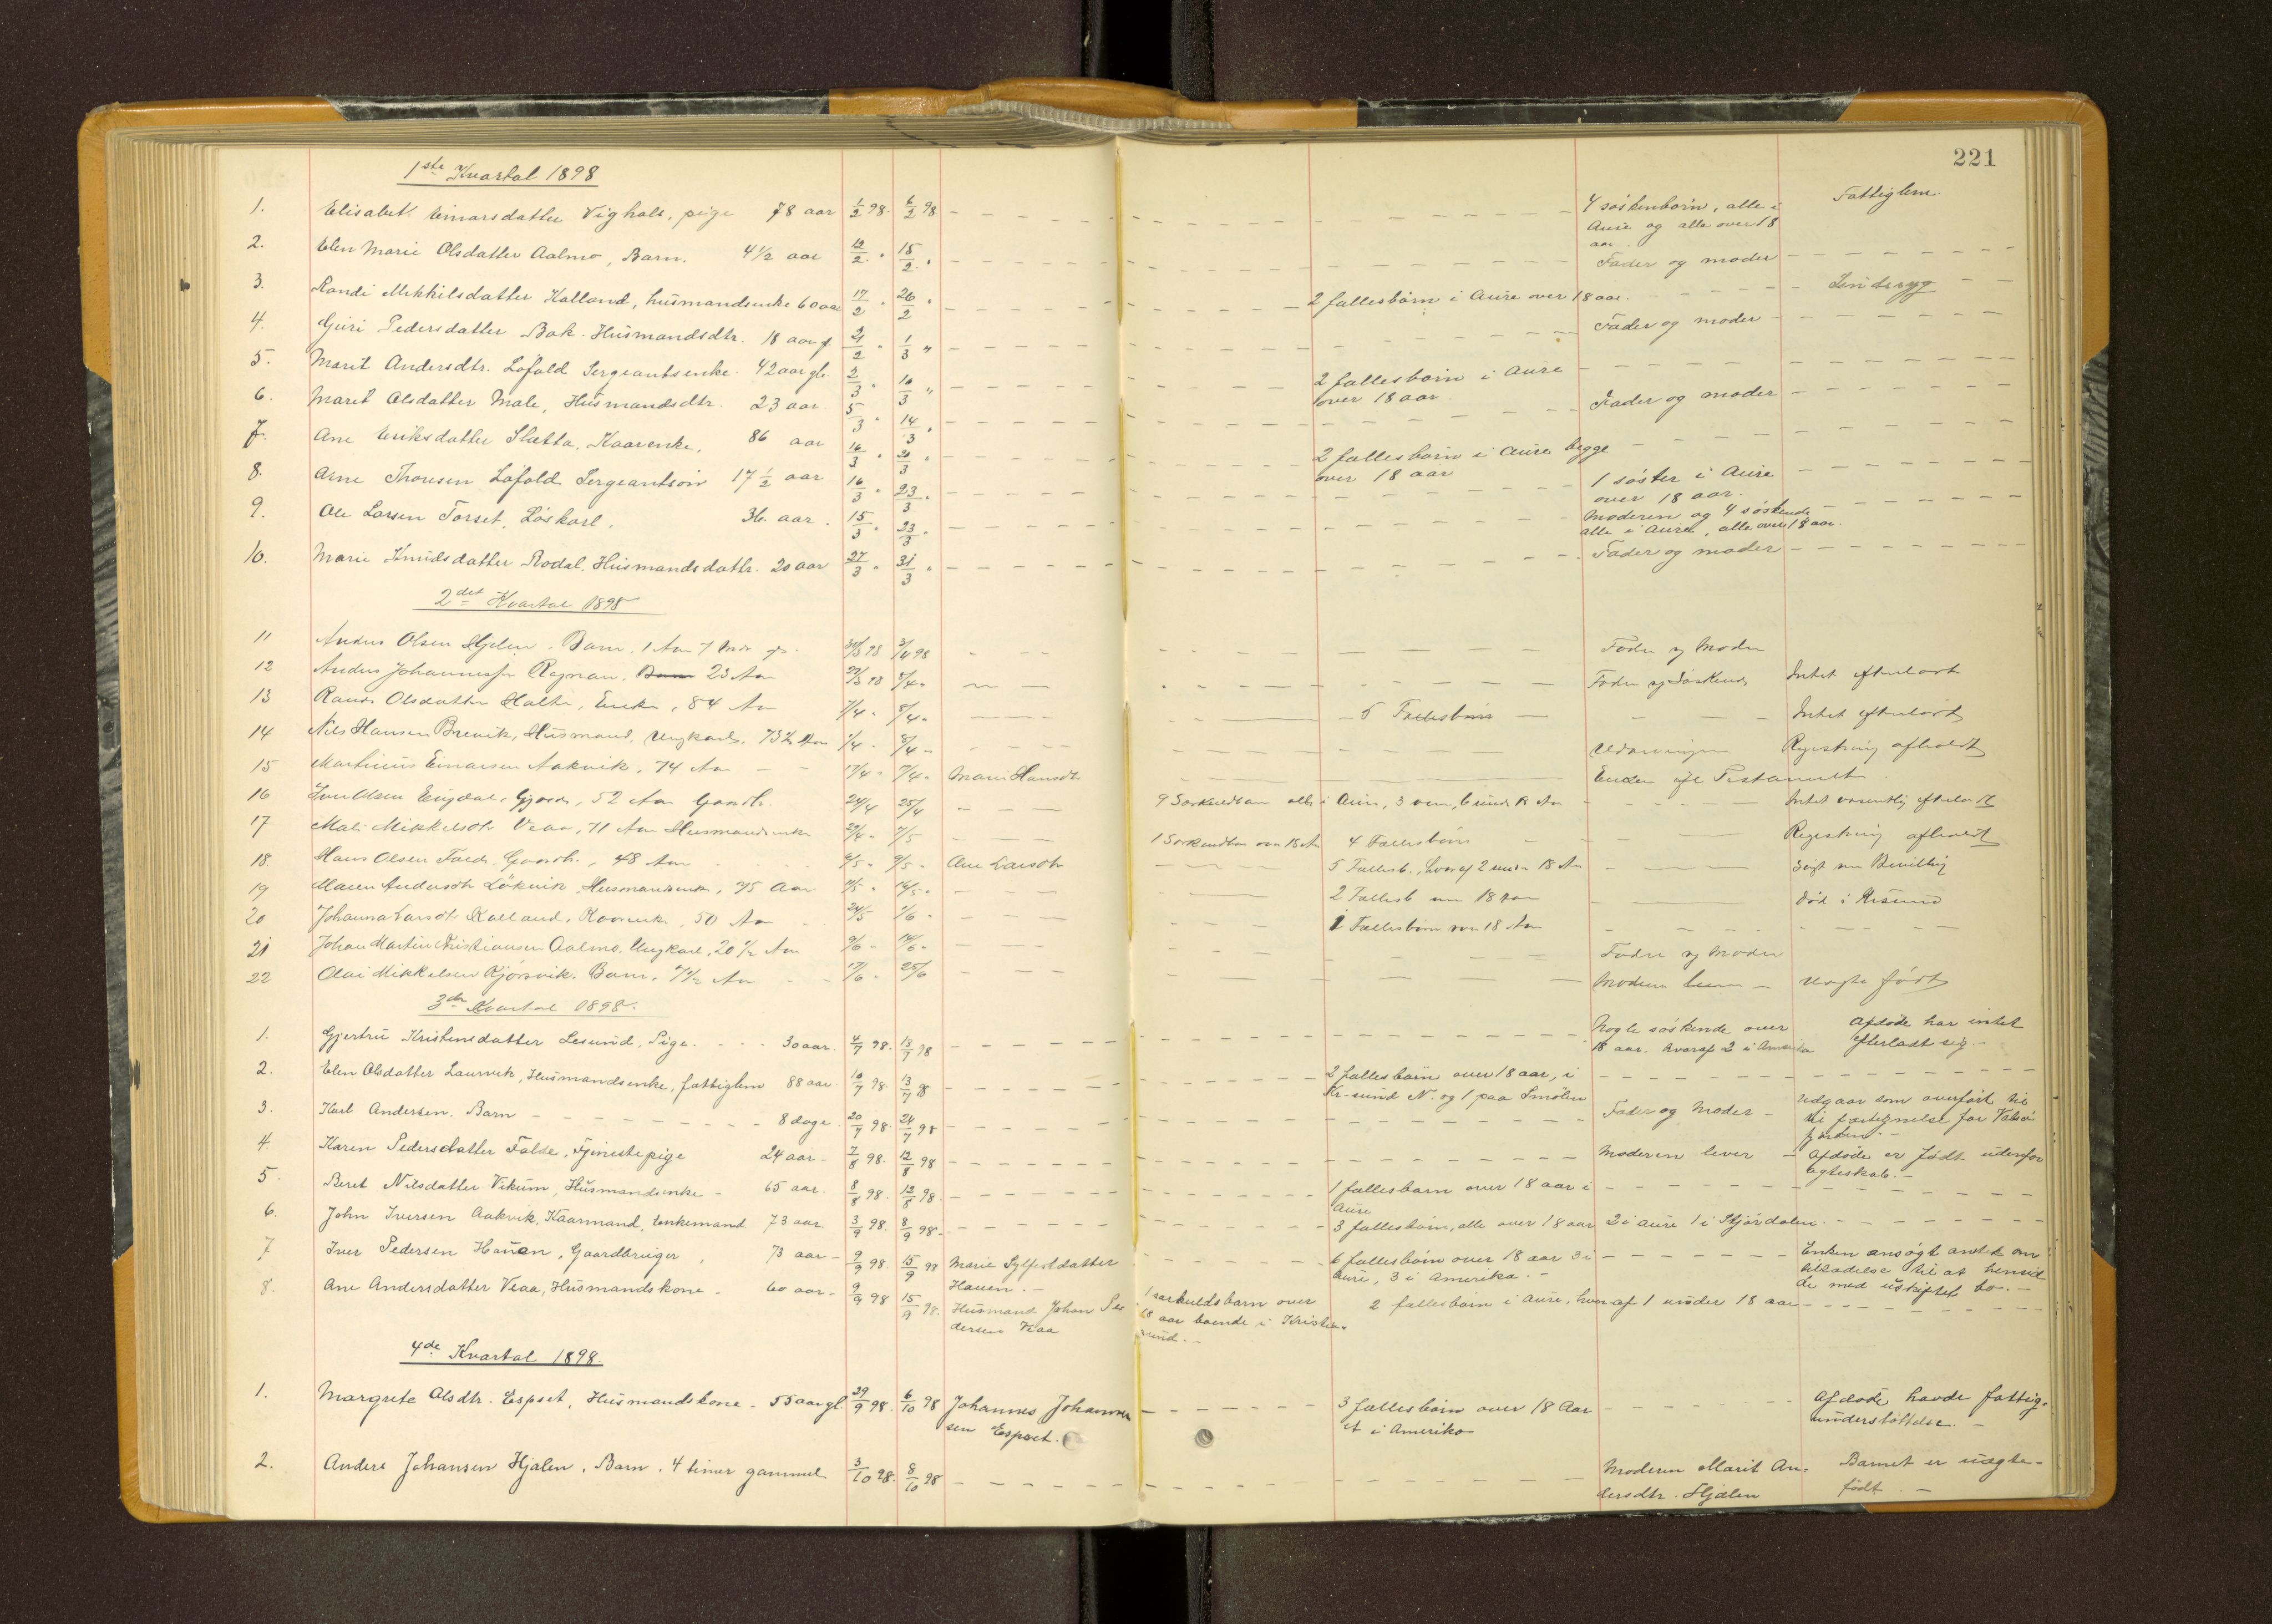 221
1ste Kvartal 1898
1. Elisabet Einarsdatter Vighals, pige 78 aar 1/2 98. 6/2 98 4 søskenbørn, alle i Fattiglem.
Aure og alle over 18
aar.
2. Elen Marie Olsdatter Aalmo, Barn. 4 1/2 aar 12/2 " 15/2 " Fader og moder
3. Randi Mikkilsdatter Kalland, husmandsenke 60 aar 17/2 " 26/2 " 2 fællesbørn i Aure over 18 aar.
4. Guri Pedersdatter Bak. Husmandsdtr. 18 aar g. 21/2 " 1/3 " Fader og moder
5. Marit Andersdtr. Lofald Sergeantsenke. 42 aar gl. 2/3 " 10/3 " 2 fællesbørn i Aure
over 18 aar.
6. Maret Olsdatter Male, Husmandsdtr. 23 aar 5/3 " 14/3 " Fader og moder
7. Ane Eriksdatter Sletta, Kaarenke, 86 aar 16/3 " 20/3 " 2 fællesbørn i Aure begge
over 18 aar
8. Arne Thoresen Lofald Sergeantsøn 17 1/2 aar 16/3 " 23/3 " 1 søster i Aure
over 18 aar.
9. Ole Larsen Torset, Løskarl. 36 aar. 15/3 " 23/3 " Moderen og 4 søskende
alle i Aure, alle over 18 aar.
10. Marie Knudsdatter Rodal, Husmandsdattr. 20 aar 27/3 " 31/3 " Fader og moder
2det Kvartal 1898
11 Anders Olsen Hjelen, Barn, 1 Aar 7 Mdr g. 30/3 98 3/4 98 Fader og Moder
12 Anders Johannessen 23 Aar 98 Fader og Søskende Intet efterladt
13 Randi Olsdatter Halte, Enke, 84 Aar 7/4 " 8/4 " 5 Fællesbørn Intet efterladt
14 Nils Hansen Brevik, Husmand, Ungkarl, 73 1/2 Aar 1/4 " 8/4 " Udarvinger Registring afholdt
15 Martinus Einarsen Aakvik, 74 Aar Marie Hansdtr Enken Testament
16 Olsen Engdal, 52 Aar Gaardb. 20/4 25/4 9 Særkuldbarn alle i Aure, 3 over, 6 under 18 Aar Intet
17 Mali Mikkelsdtr Veaa, 71 Aar Husmandsenke 29/4 " 7/5 1 Særkuldbarn over 18 Aar 4 Fællesbørn Registring afholdt
18. Hans Olsen Gaardb., 48 Aar 9/5 " Ane Larsdtr 5 Fællesb., hvoraf 2 under 18 Aar Søgt om Bevilling
19 Maren Andersdtr Løkvik, Husmandsenke, 75 Aar 2 Fællesb over 18 Aar død i Krsund
20 Johanna Larsdtr Kalland, Kaarenke, 50 Aar 24/5 1/6 " 1 Fællesbørn over 18 Aar
21 Johan Martin Kristiansen Aalmo, Ungkarl, 20 1/2 Aar 9/6 " 14/6 " Fader og Moder
22 Olai Mikkelsen Kjørsvik, Barn, 7 1/2 Aar 17/6 " 25/6 Moderen lever Uægte født
3die Kvartal 1898.
1. Gjertru Kristensdatter Lesund, Pige. 30 aar. 4/7 98. 13/7 98 Nogle søskende over Afdøde har intet
18 aar. hvoraf 2 i Amerika efterladt sig.
2. Elen Olsdatter Laurvik, Husmandsenke, fattiglem 88 aar 10/7 98 13/7 98 2 fællesbørn over 18 aar, i
Kr-sund N. og 1 paa Smølen
3. Karl Andersen. Barn 8 dage. 20/7 98. 24/7 98 Fader og Moder Udgaar som overført til
fortegnelse for Valsø
fjorden.
4. Karen Pedersdatter Falde, Tjenestepige 24 aar 7/8 98. 12/8 98 Moderen lever Afdøde er født udenfor
ægteskab.
5. Beret Nilsdatter Vikum, Husmandsenke 65 aar. 8/8 98. 12/8 98. 1 fællesbarn over 18 aar i
Aure
6. John Iversen Aakvik, Kaarmand, Enkemand 73 aar. 3/9 98. 8/9 98. 3 fællesbørn, alle over 18 aar 2 i Aure 1 i Stjørdalen.
7 Iver Pedersen Hauen, Gaardbruger, 73 aar 9/9 98. 15/9 98 Marie Sylfestdatter 6 fællesbørn over 18 aar 3 i Enken ansøgt amtet om
Hauen. Aure, 3 i Amerika. tilladelse til at hensid
de med uskiftet bo.
8. Ane Andersdatter Veaa, Husmandskone 60 aar 9/9 98 15/9 98. Husmand Johan Pe 1 særkuldsbarn over 2 fællesbørn i Aure, hvoraf 1 under 18 aar
dersen Veaa 18 aar boende i Kristian
sund.
4de Kvartal 1898.
1. Margrete Olsdtr. Espset, Husmandskone 55 aar gl. 29/9 98. 6/10 98 Johannes Johannes 3 fællesbørn over 18 Aar Afdøde havde fattig-
sen Espset. et i Amerika understøttelse.
2. Anders Johansen Hjalen, Barn, 4 timer gammel 3/10 98. 8/10 98 Moderen Marit An- Barnet er uægte-
dersdtr. Hjalen født.